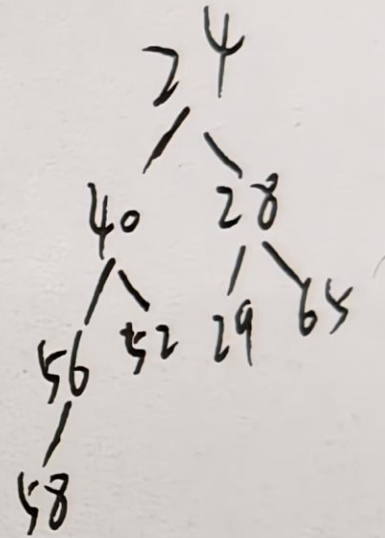 24
40 28
56 52 29 65
58